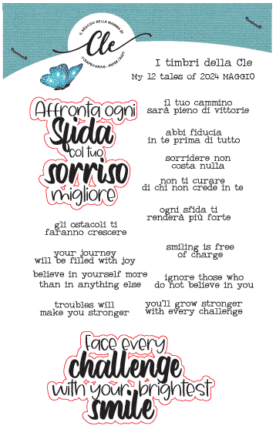 Cle
I timbri della Cle
My 12 tales of 2024 MAGGIO
Affronta ogni
Sfida
col tuo
sorriso
migliore
il tuo cammino
sarà pieno di vittorie
abbi fiducia
in te prima di tutto
sorridere non
costa nulla
non ti curare
di chi non crede in te
ogni sfida ti
renderà più forte
gli ostacoli ti
faranno crescere
your journey
will be filled with joy
believe in yourself more
than in anything else
troubles will
make you stronger
smiling is free
of charge
ignore those who
do not believe in you
you'll grow stronger
with every challenge
Face every
challenge
with your brightest
smile